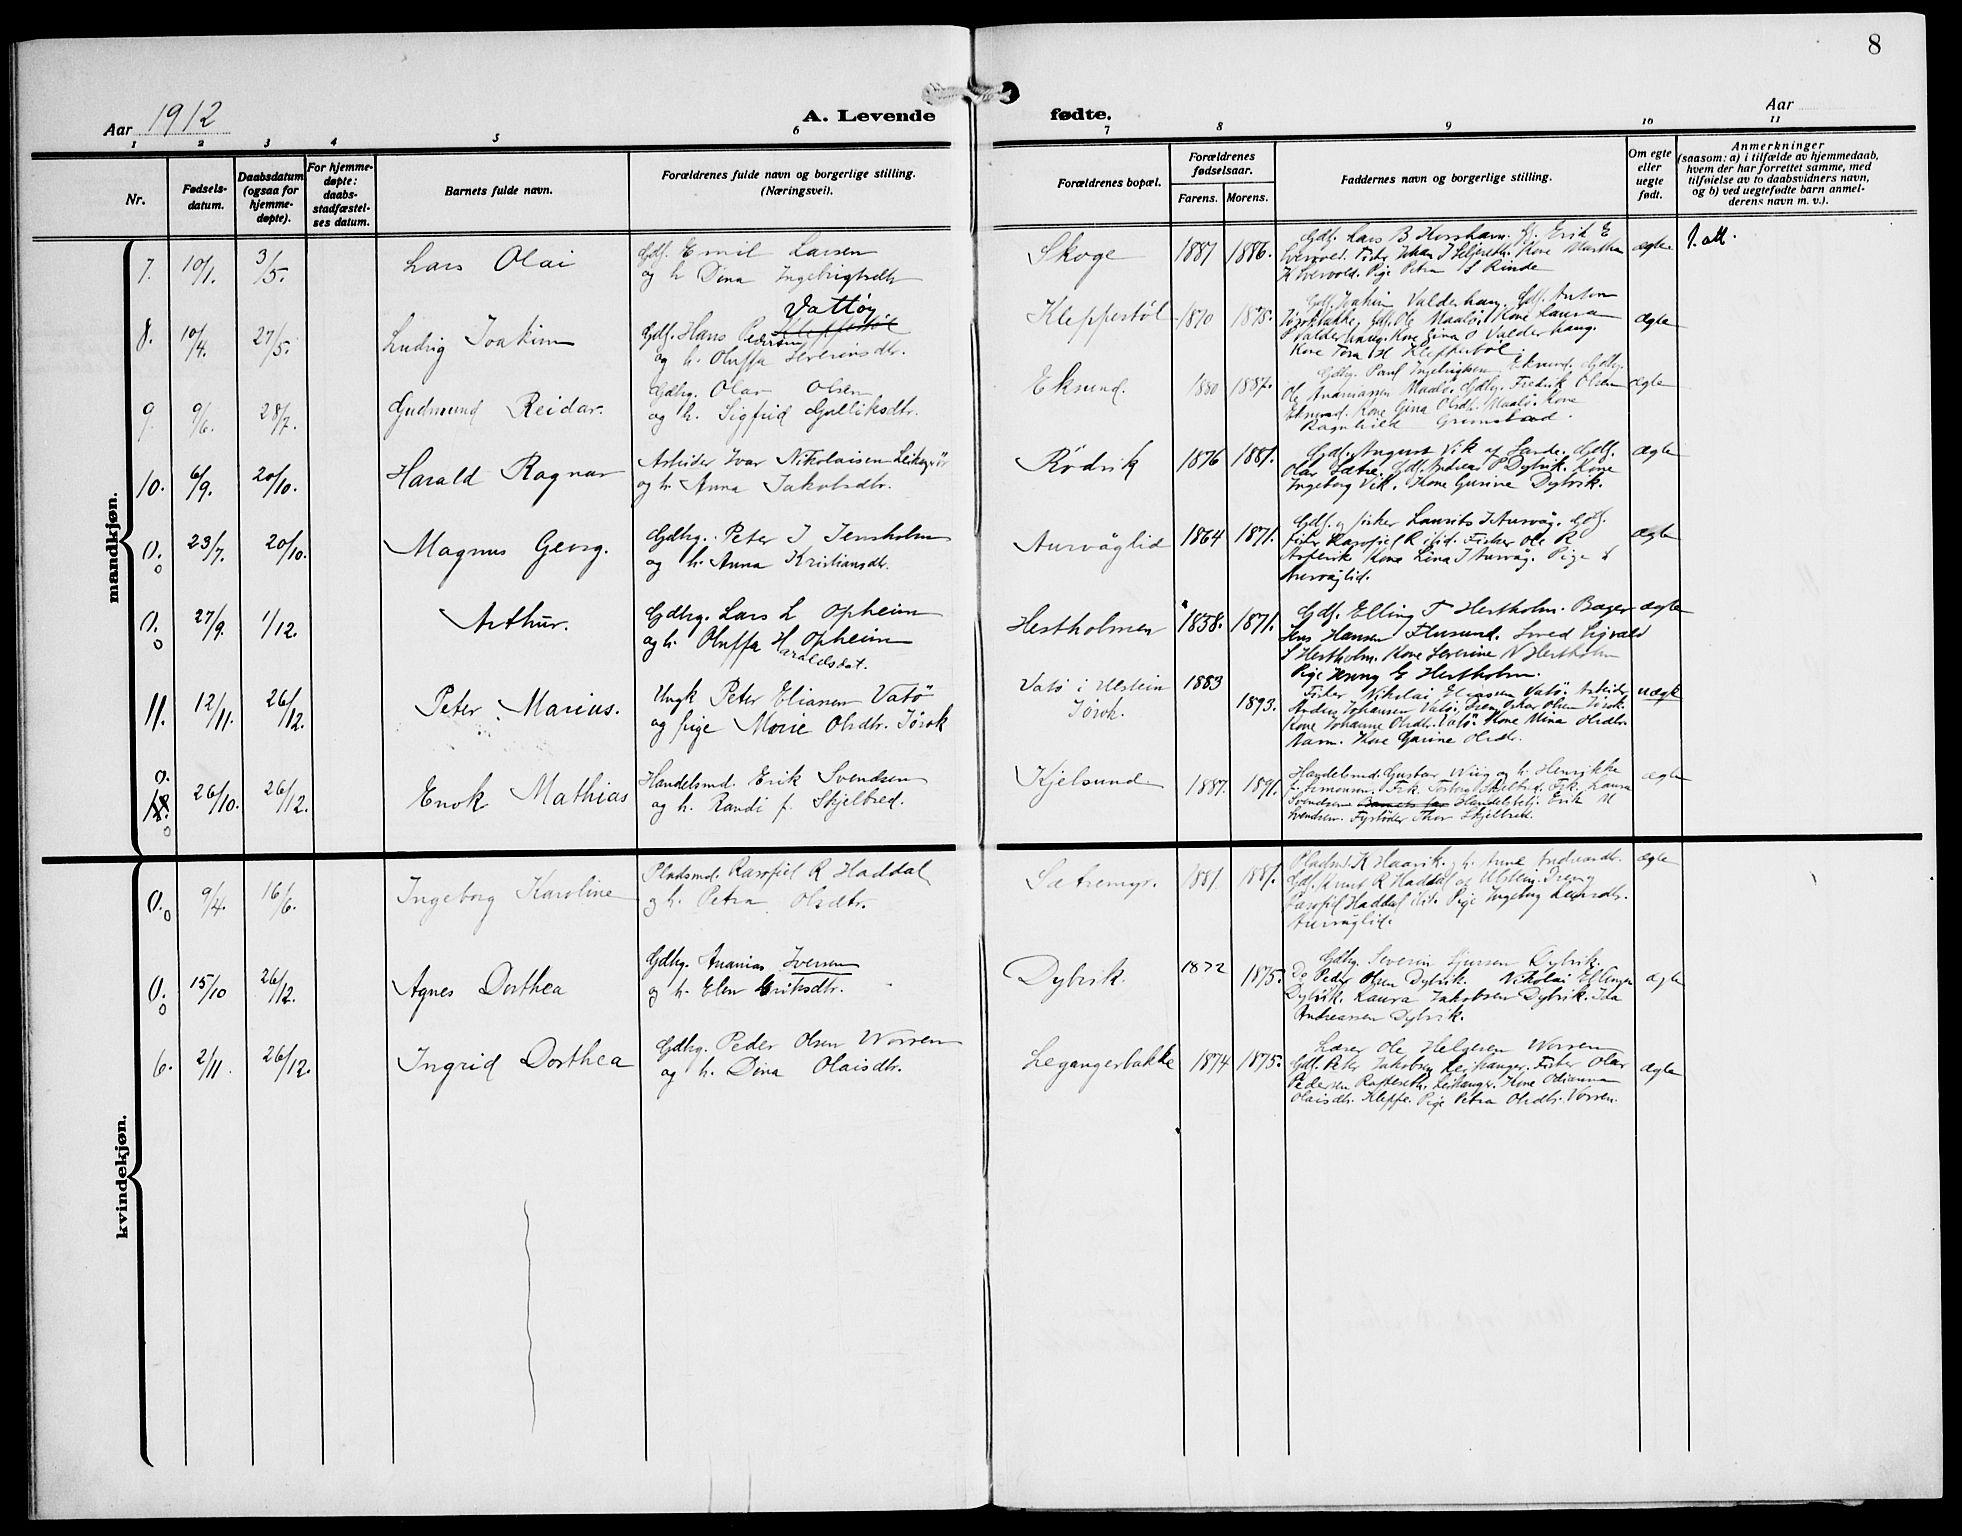 8
Aar 1912
A. Levende fødte.
Aar
1 2 3 4 5 6 7 8 9 10 11
Nr.
Fødsels-
datum.
Daabsdatum
(ogsaa for
hjemme-
døpte).
For hjemme-
døpte:
daabs-
stadfæstel-
ses datum.
Barnets fulde navn.
Forældrenes fulde navn og borgerlige stilling.
(Næringsvei).
Forældrenes bopæl.
Forældrenes
fødselsaar.
Farens. Morens.
Faddernes navn og borgerlige stilling.
Om egte
eller
uegte
født.
Anmerkninger
(saasom: a) i tilfælde av hjemmedaab,
hvem der har forrettet samme, med
tilføielse av to daabsvidners navn,
og b) ved uegtefødte barn anmel-
derens navn m. v.).
mandkjøn.
7. 10/1. 3/5. Lars Olai
Gdf. Emil Larsen
og h. Dina Ingebrigtsdtr
Skoge 1887 1886.
Gdf. Lars B Erik E
Pige Petra S Rinde
ægte
8. 10/4. 27/5. Ludvig Joakim
Vattøy
Gdf. Hans Pedersen Kleppestøl
og h. Oluffa Severinsdtr.
Kleppestøl 1870 1875.
Gdf. Joakim Valderhaug. Gdf. Anton
Gdf. Ole Maalø. Kone Laura
Valderhaug. Kone Gina O Valderhaug.
Kone Tora H Kleppestøl.
ægte
9. 9/6. 28/7. Gudmund Reidar.
Gdbg. Olav Olsen
og h. Sigfrid Gulliksdtr.
Eksund. 1880 1887.
Gdbg. Paul Ingebrigtsen Eksund. Gdbg.
Ole Andreassen Maalø. Gdbg. Fredrik Olsen
Eksund. Kone Gina Olsdtr. Maalø. Kone
Ragnhild Grimstad.
ægte
10. 6/9. 20/10. Harald Ragnar
Arbeider Ivar Nikolaisen
og h. Anna Jakobsdtr.
Rødvik 1876 1881.
Gdf. August Vik af Sande. Gdf.
Olav Sætre. Gdf. Andreas P Dybvik. Kone
Ingeborg Vik. Kone Gurine Dybvik.
ægte
0. 23/7. 20/10. Magnus Georg.
Gdbg. Peter J Jensholm
og h. Anna Kristiansdtr.
Aurvåglid 1864 1871.
Gdf. og fisker Laurits J Aurvåg. Gdf.
Rasofiel R Fisker Ole R
Kone Lina J Aurvåg. Pige
Aurvåglid.
ægte
0. 27/9. 1/12. Arthur.
Gdbg. Lars L Opheim
og h. Oluffa H Opheim
Haraldsdat.
Hestholmen 1858. 1871.
Gdf. Elling T Hestholm. Bager
Jens Hansen Flusund. Smed Sigvald
S Hestholm. Kone Severine N Hestholm
Pige Jenny E Hestholm.
ægte
11. 12/11. 26/12. Peter Marius.
Ungk Peter Eliassen Vatø
og pige Marie Olsdtr. Jørok
Vatø i Ulstein
Jørok. 1883 1893.
Fisker Nikolai Eliassen Vatø. Arbeider
Anders Johansen Vatø. Oskar Olsen Jørok.
Kone Johanne Olsdtr. Vatø. Kone Mina Olsdtr.
Kone Gurine Olsdtr.
uægte
0. 26/10. 26/12. Enok Mathias
Handelsmd. Erik Svendsen
og h. Randi f. Skjelbred.
Kjelsund 1887. 1891.
Handelsmd. Gustav Wiig og h. Henrikke
f. Simonsen. Frk. Torborg Skjelbred. Frk. Laura
Svendsen Barnets far Handelsbetj. Erik M
Svendsen. Thor Skjelbred.
ægte
kvindekjøn.
0. 9/4. 16/6. Ingeborg Karoline
Pladsmd. Rasofiel R Haddal
og h. Petra Olsdtr.
Sætremyr. 1881. 1881.
Pladsmd. K Haavik og h. Anne
Gdf. Knut R Haddal af Ulstein.
Rasofiel Haddal Pige Ingeborg
Aurvåglid.
ægte
0. 15/10 26/12. Agnes Dorthea
Gdbg. Ananias Iversen
og h. Elen Eriksdtr.
Dybvik. 1872 1875.
Gdbg. Severin Sjursen Dybvik.
Do Peder Olsen Dybvik. Nikolai
Dybvik. Laura Jakobsen Dybvik. Ida
Andreassen Dybvik.
ægte
6. 2/11. 26/12. Ingrid Dorthea
Gdbg. Peder Olsen Worren
og h. Dina Olaisdtr.
Legangerbakke 1874 1875.
Lærer Ole Helgesen Worren
Gdf. Peter Jakobsen Leikanger. Fisker Olav
Pedersen Leikanger. Kone Olianna
Olaisdtr. Kleppe. Pige Petra Olsdtr. Vorren.
ægte